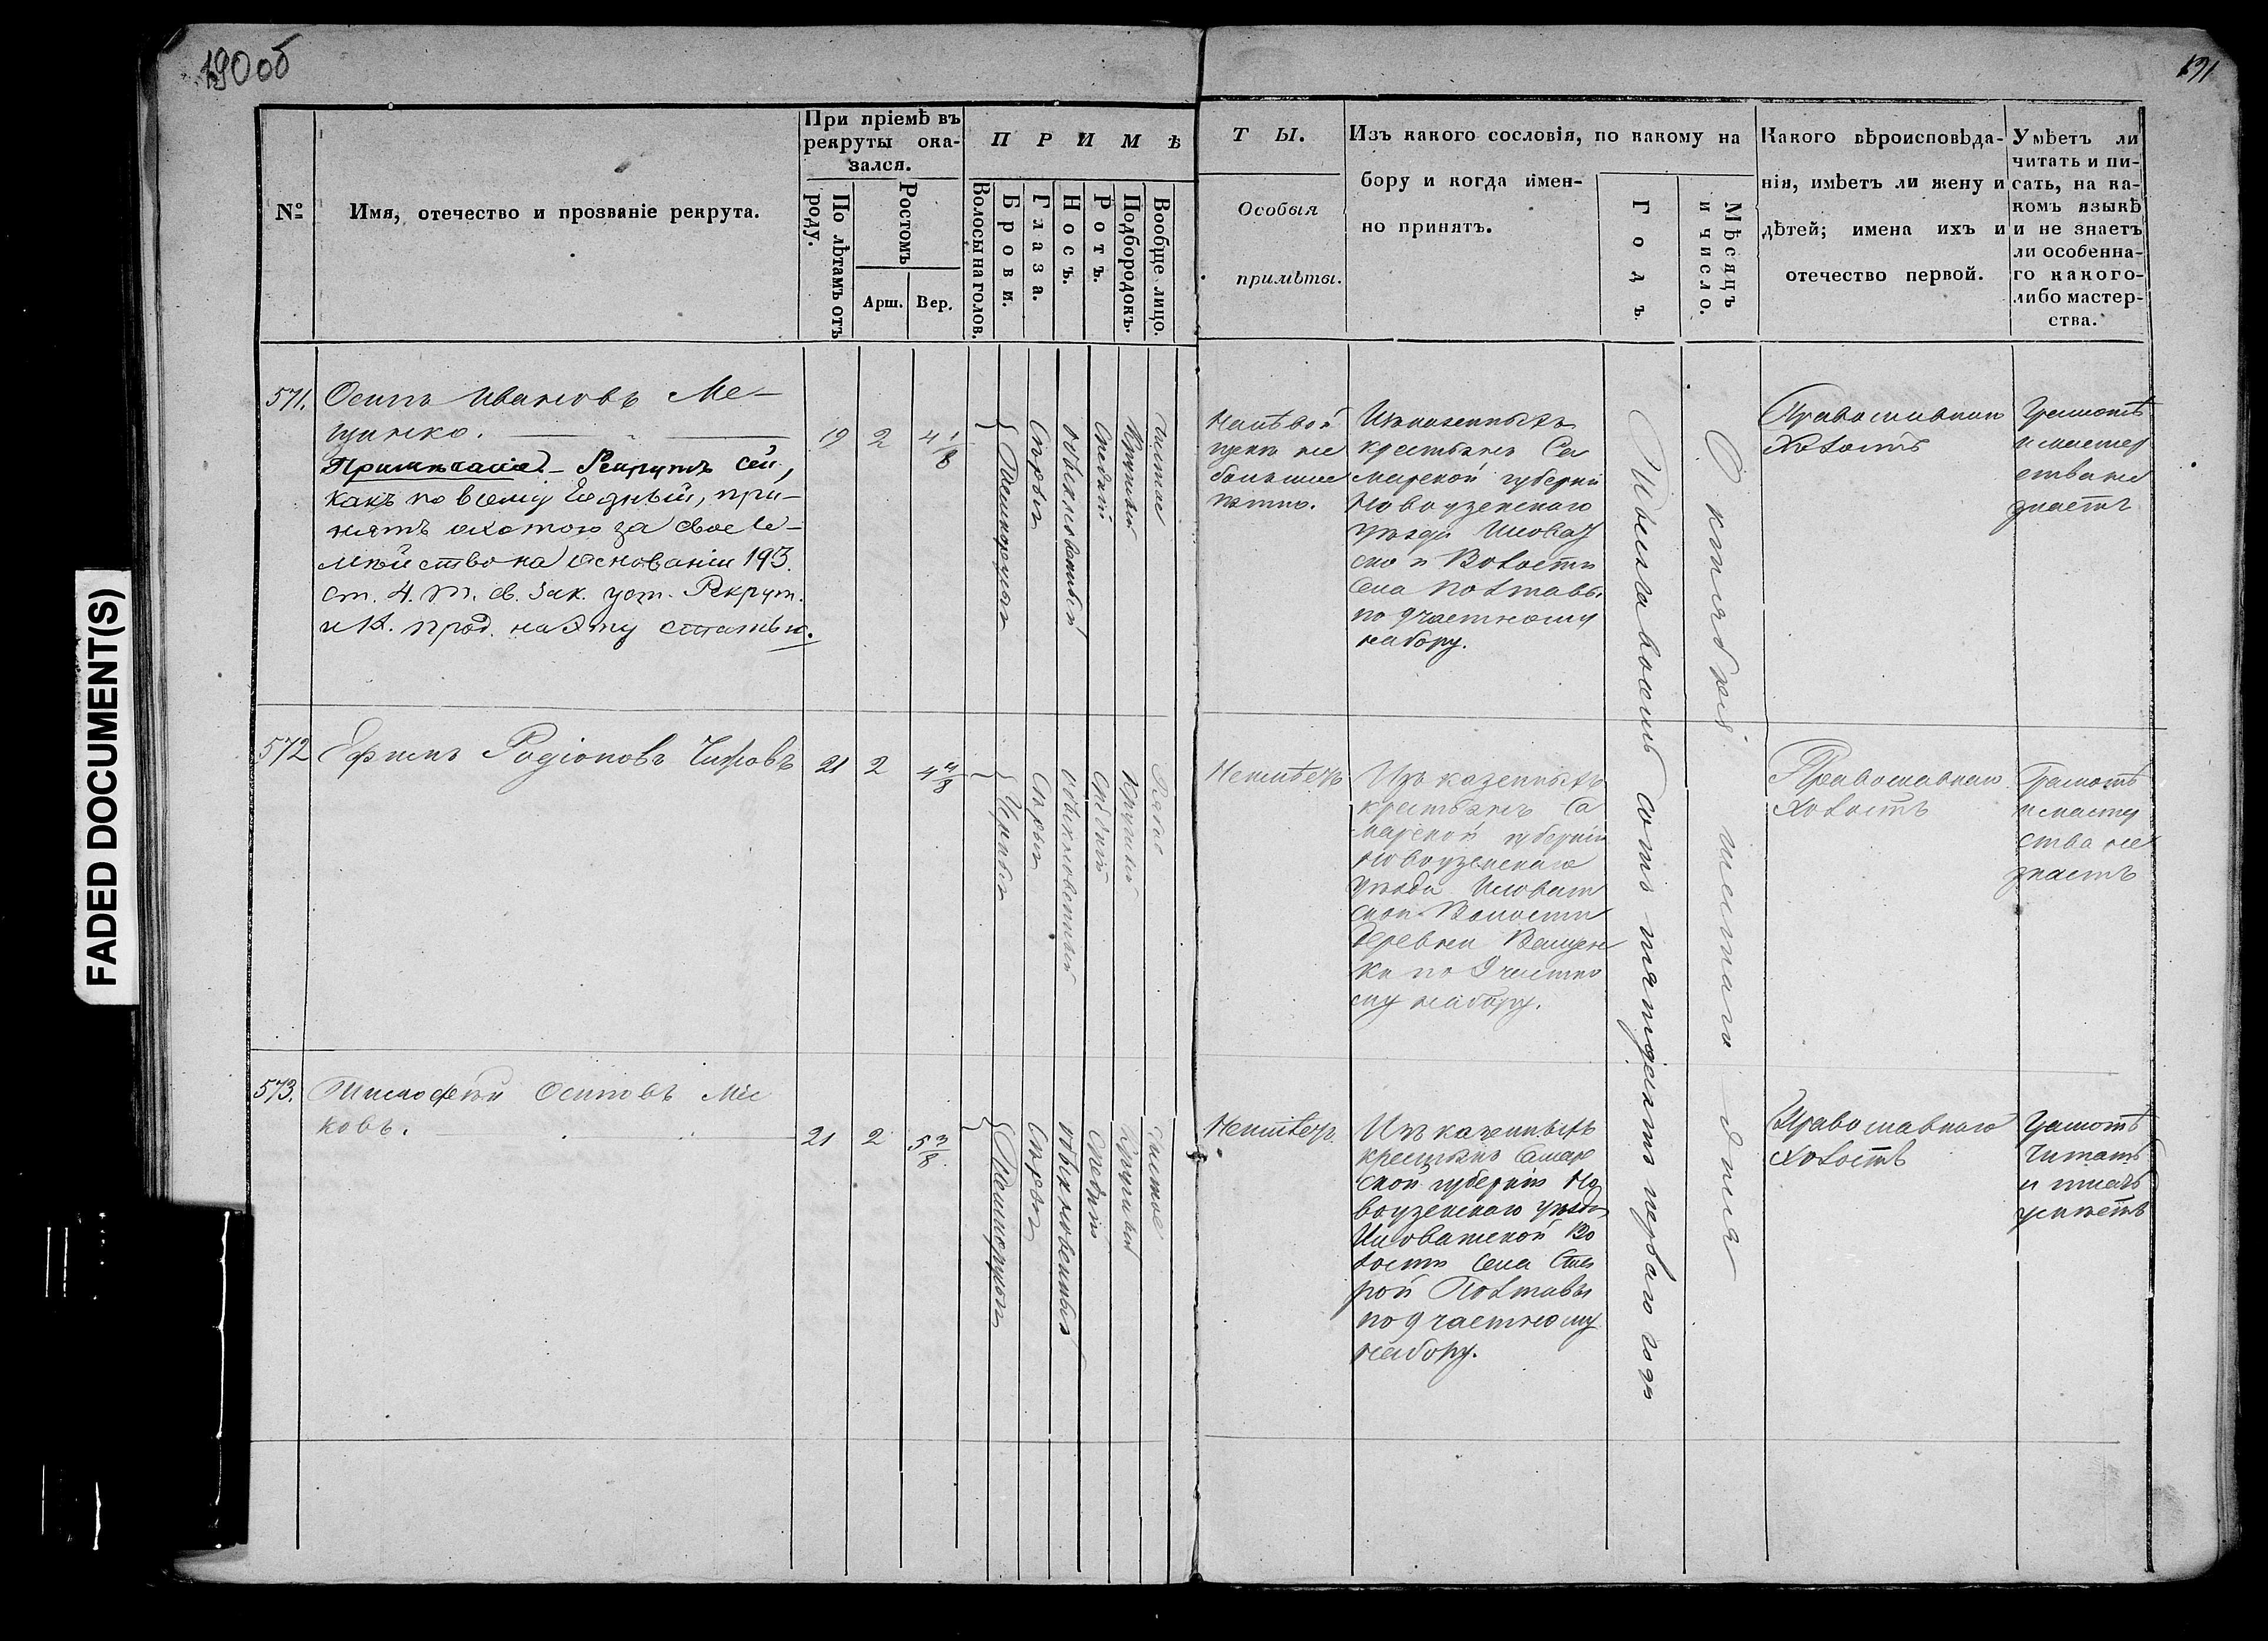 190об
191
FADED DOCUMENT(S)
№
Имя, отечество и прозваніе рекрута.
При пріемѣ въ
рекруты ока-
зался.
По лѣтамъ отъ
роду.
Ростомъ
Арш.
Вер.
П Р И М Ѣ
Волосы на голов.
Брови.
Глаза.
Носъ.
Ротъ.
Подбородокъ.
Вообще лицо.
Т Ы.
Особыя
примѣты.
Изъ какого сословія, по какому на
бору и когда имен-
но принятъ.
Годъ.
Мѣсяцъ
и число.
Какого вѣроисповѣда-
нія, имѣетъ ли жену и
дѣтей; имена ихъ и
отечество первой.
Умѣетъ ли
читать и пи-
сать, на ка-
комъ языкѣ
и не знаетъ
ли особенна-
го какого-
либо мастер-
ства.
571.
Осипъ Ивановъ Ме-
щинко.
Примѣчаніе. Рекрутъ сей,
какъ по всему годный, при-
нятъ охотою за свое се-
мѣйство на основаніи 193.
ст. 4. т. св. зак. уст. Рекрут.
и 14. прод. на эту статью.
19
2
4 1/8
Темнорусыя
Сѣрыя
обыкновенный
Средній
Круглый
Чистое
На лѣвой
щекѣ не
большое
пятно.
Изъ казенныхъ
крестьянъ Са
марской губерніи
Новоузенскаго
уѣзда Иловат
ской Волости
села Полтавки
по 9 частному
набору.
Тысяча восемь сотъ пятьдесятъ перваго года
Октября шестаго дня
Православнаго
Холостъ
Грамотѣ
и мастер
ства не
знаетъ
572
Ефимъ Родіоновъ Чижовъ
21
2
4 4/8
Черныя
Сѣрыя
обыкновенный
Средній
Круглый
Рябое
Не имѣетъ
Изъ казенныхъ
крестьянъ Са
марской губерніи
Новоузенскаго
уѣзда Иловат
ской Волости
деревни
по 9 частно
му набору.
Православнаго
Холостъ
Грамотѣ
и мастер
ства не
знаетъ
573.
Тимофей Осиповъ
ковъ.
21
2
5 3/8
Темнорусыя
Сѣрыя
обыкновенный
Средній
Круглый
Чистое
Не имѣетъ
Изъ казенныхъ
крестьянъ Самар
ской губерніи Но
воузенскаго уѣзда
Иловатской Во
лости села Ста
рой Полтавки
по 9 частному
набору.
Православнаго
Холостъ
Грамотѣ
читать
и писать
умѣетъ